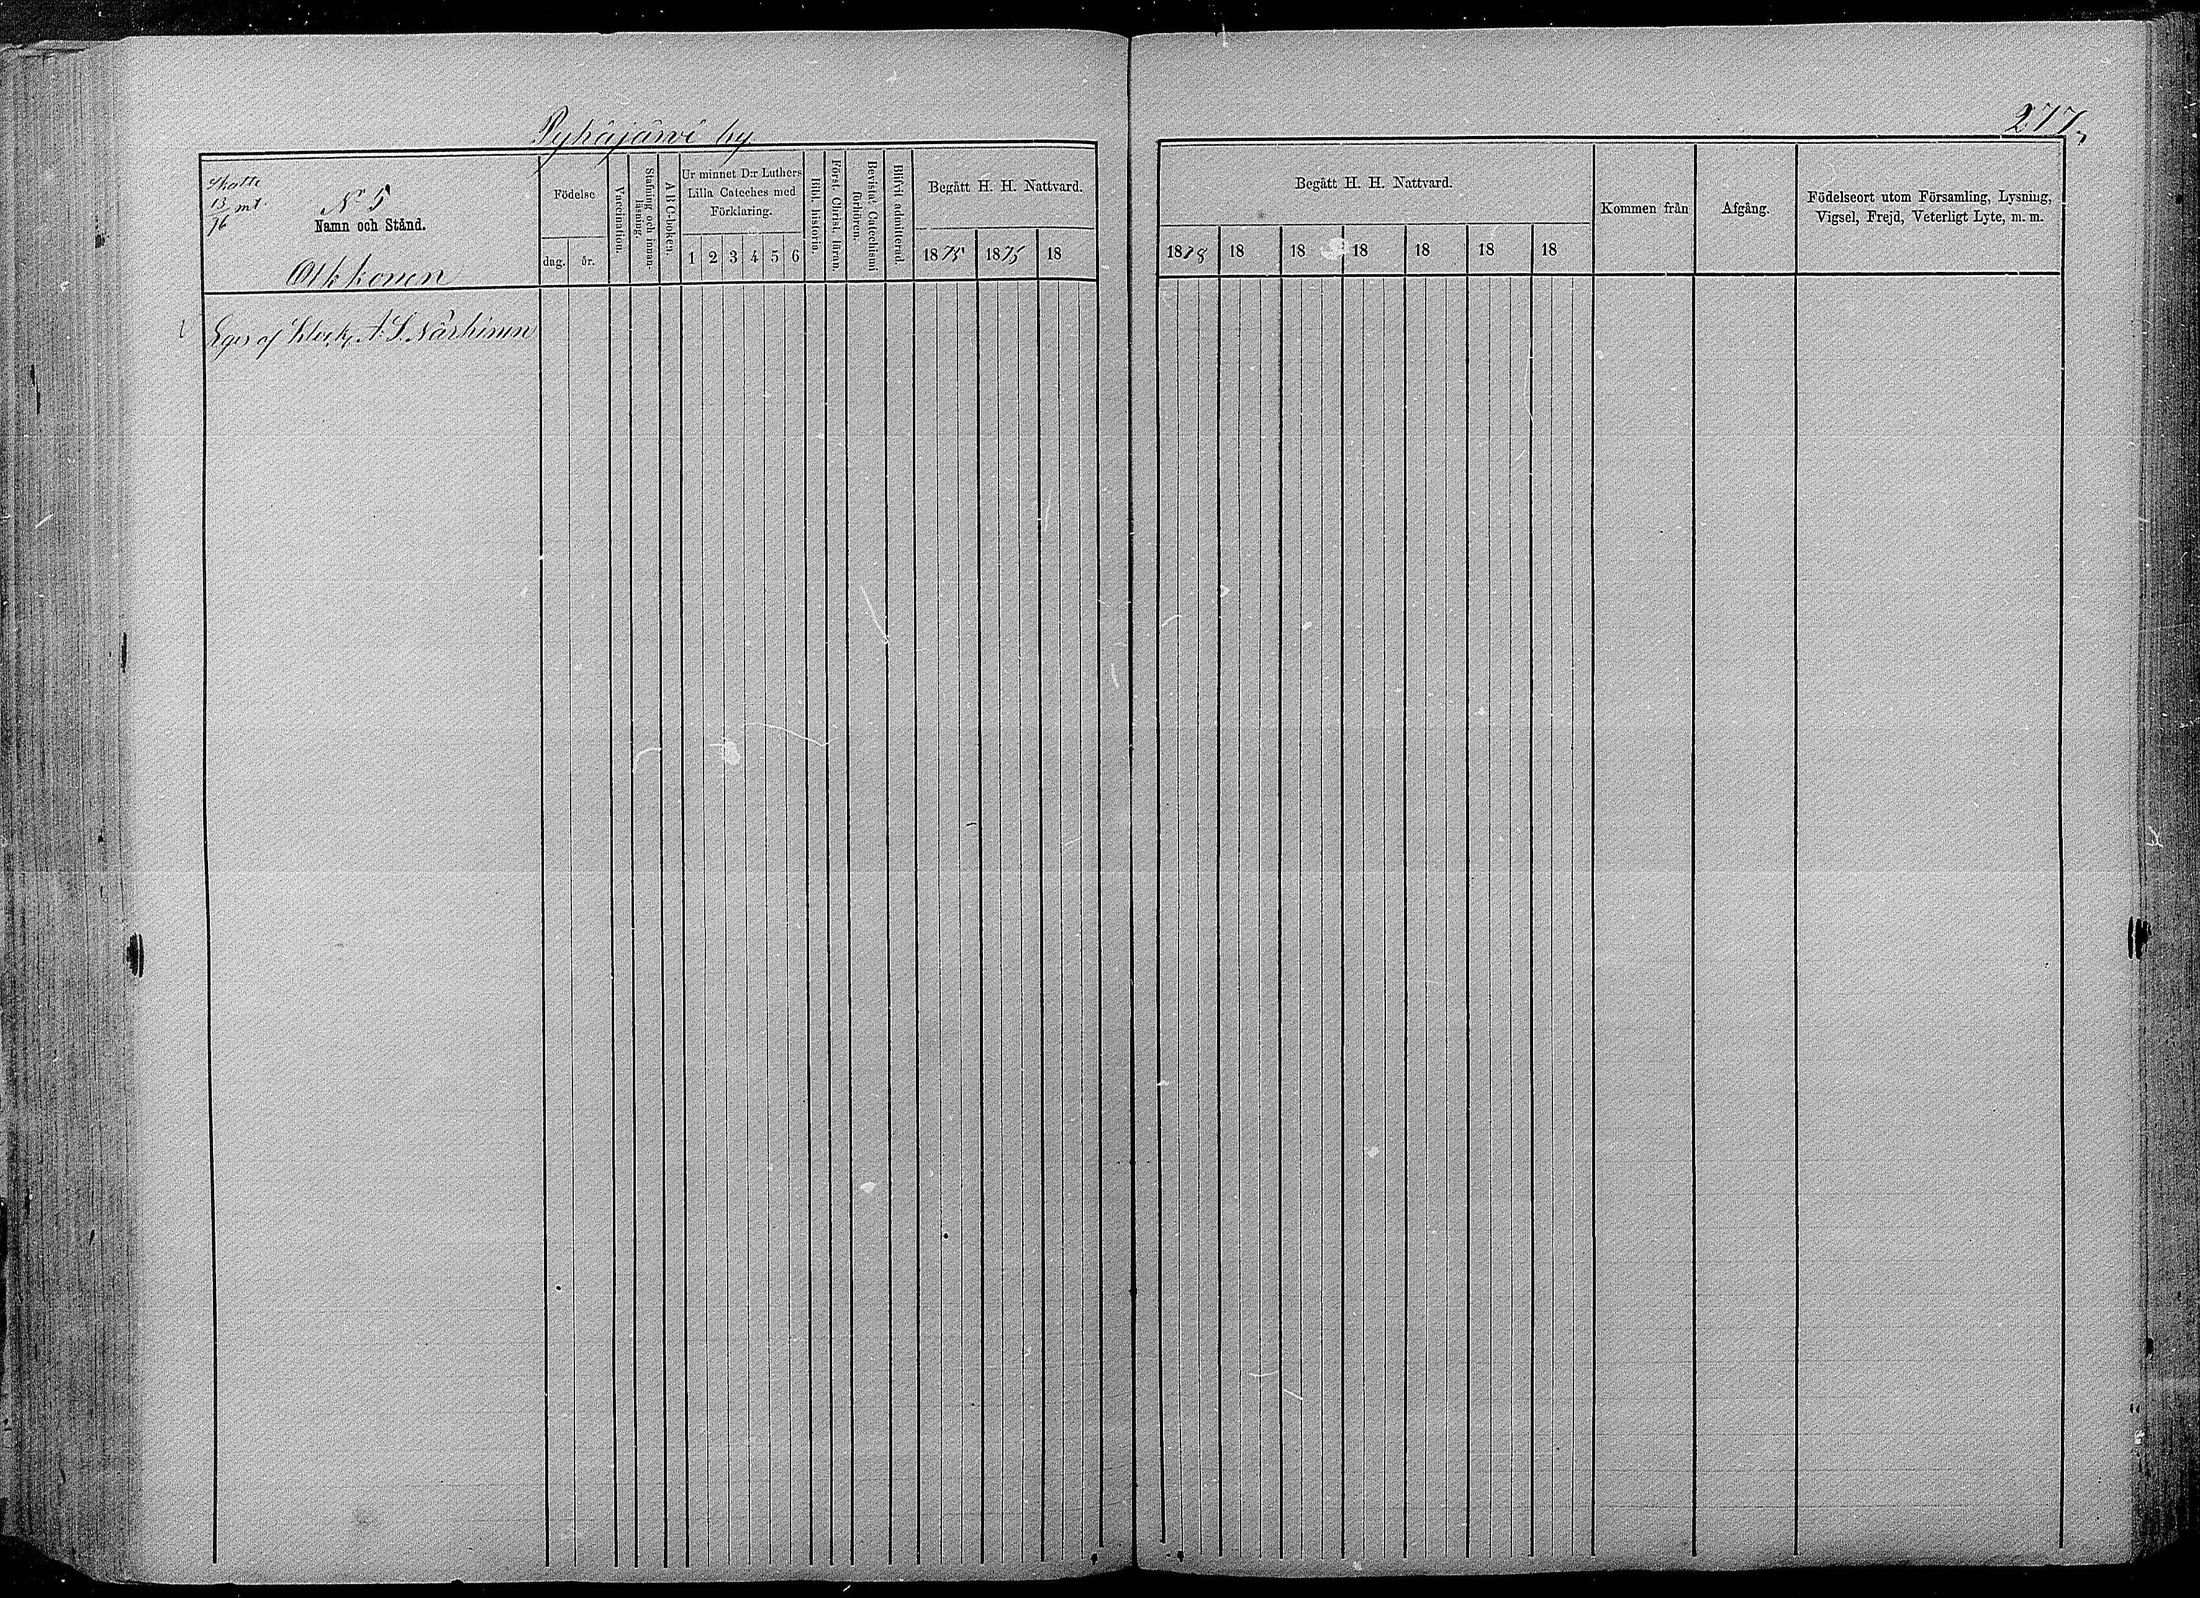 Pyhäjärvi by
277.
Skatte
13/96 mt.
N:o 5
Namn och Stånd.
Okkonen
Födelse
dag.
år.
Vaccination.
Stafning och innan-
läsning.
ABC-boken.
Ur minnet D:r Luthers
Lilla Cateches med
Förklaring.
1 2 3 4 5 6
Bibl. historia.
Först. Christ. läran.
Bevistat Catechismi
förhören.
Blifvit admitterad.
Begått H. H. Nattvard.
1875 1875 18
Begått H. H. Nattvard.
1878 18 18 18 18 18 18
Kommen från
Afgång.
Födelseort utom Församling, Lysning,
Vigsel, Frejd, Veterligt Lyte, m. m.
Eges af Klock. A. S. Närhinen